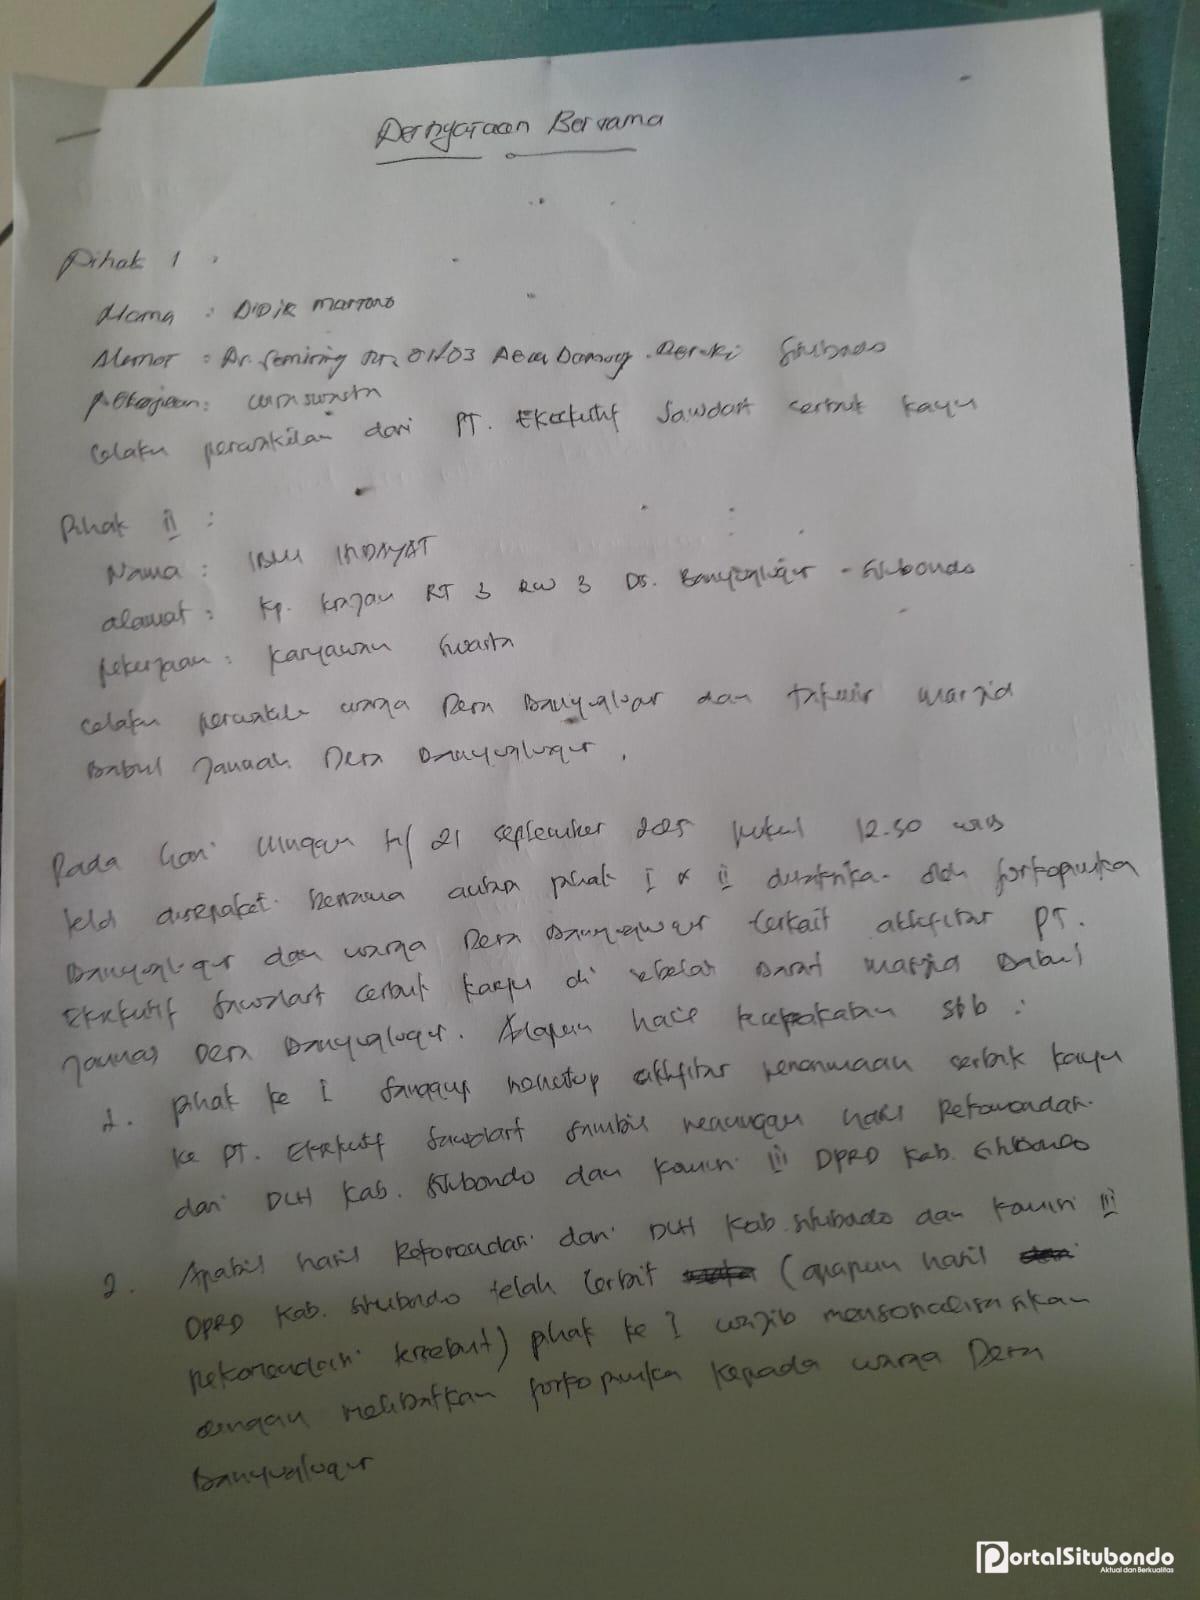 Pernyataan Bersama
Pihak 1 :
Nama : Didik Martono
Alamat : Dr. Semiring RT 01/03 Desa Demung. Besuki Situbondo
Pekerjaan: wiraswasta
Selaku perwakilan dari PT. Eksekutif Sawdart serbuk kayu
Pihak II :
Nama : IBNU HIDAYAT
alamat : Kp. Krajan RT 3 RW 3 Ds. Banyuglugur - Situbondo
Pekerjaan : Karyawan Swasta
Selaku perwakilan warga Desa Banyuglugur dan takmir masjid
Babul Jannah Desa Banyuglugur.
Pada hari Minggu tgl 21 September 2025 pukul 12.50 WIB
telah disepakati bersama antara pihak I & II disaksikan oleh forkopimka
Banyuglugur dan warga Desa Banyuglugur terkait aktifitas PT.
Eksekutif Sawdart serbuk kayu di sebelah barat masjid Babul
Jannah Desa Banyuglugur. Adapun hasil kesepakatan sbb :
1. Pihak ke I sanggup menutup aktifitas penerimaan serbuk kayu
ke PT. Eksekutif Sawdart sambil menunggu hasil Rekomendasi
dari DLH Kab. Situbondo dan Komisi III DPRD Kab. Situbondo
2. Apabila hasil Rekomendasi dari DLH Kab. Situbondo dan Komisi III
DPRD Kab. Situbondo telah terbit (apapun hasil
rekomendasi tersebut) pihak ke I wajib mensosialisasikan
dengan melibatkan forkopimka kepada warga Desa
Banyuglugur
PortalSitubondo
Aktual dan Berkualitas